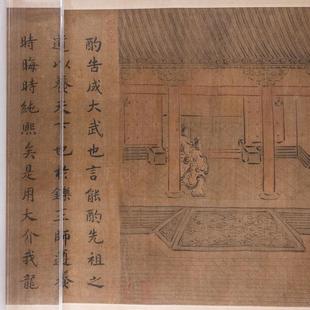 酌告成大武也言能酌先祖之
道以養天下也於鑠王師遵養
時晦時純熙矣是用大介我龍